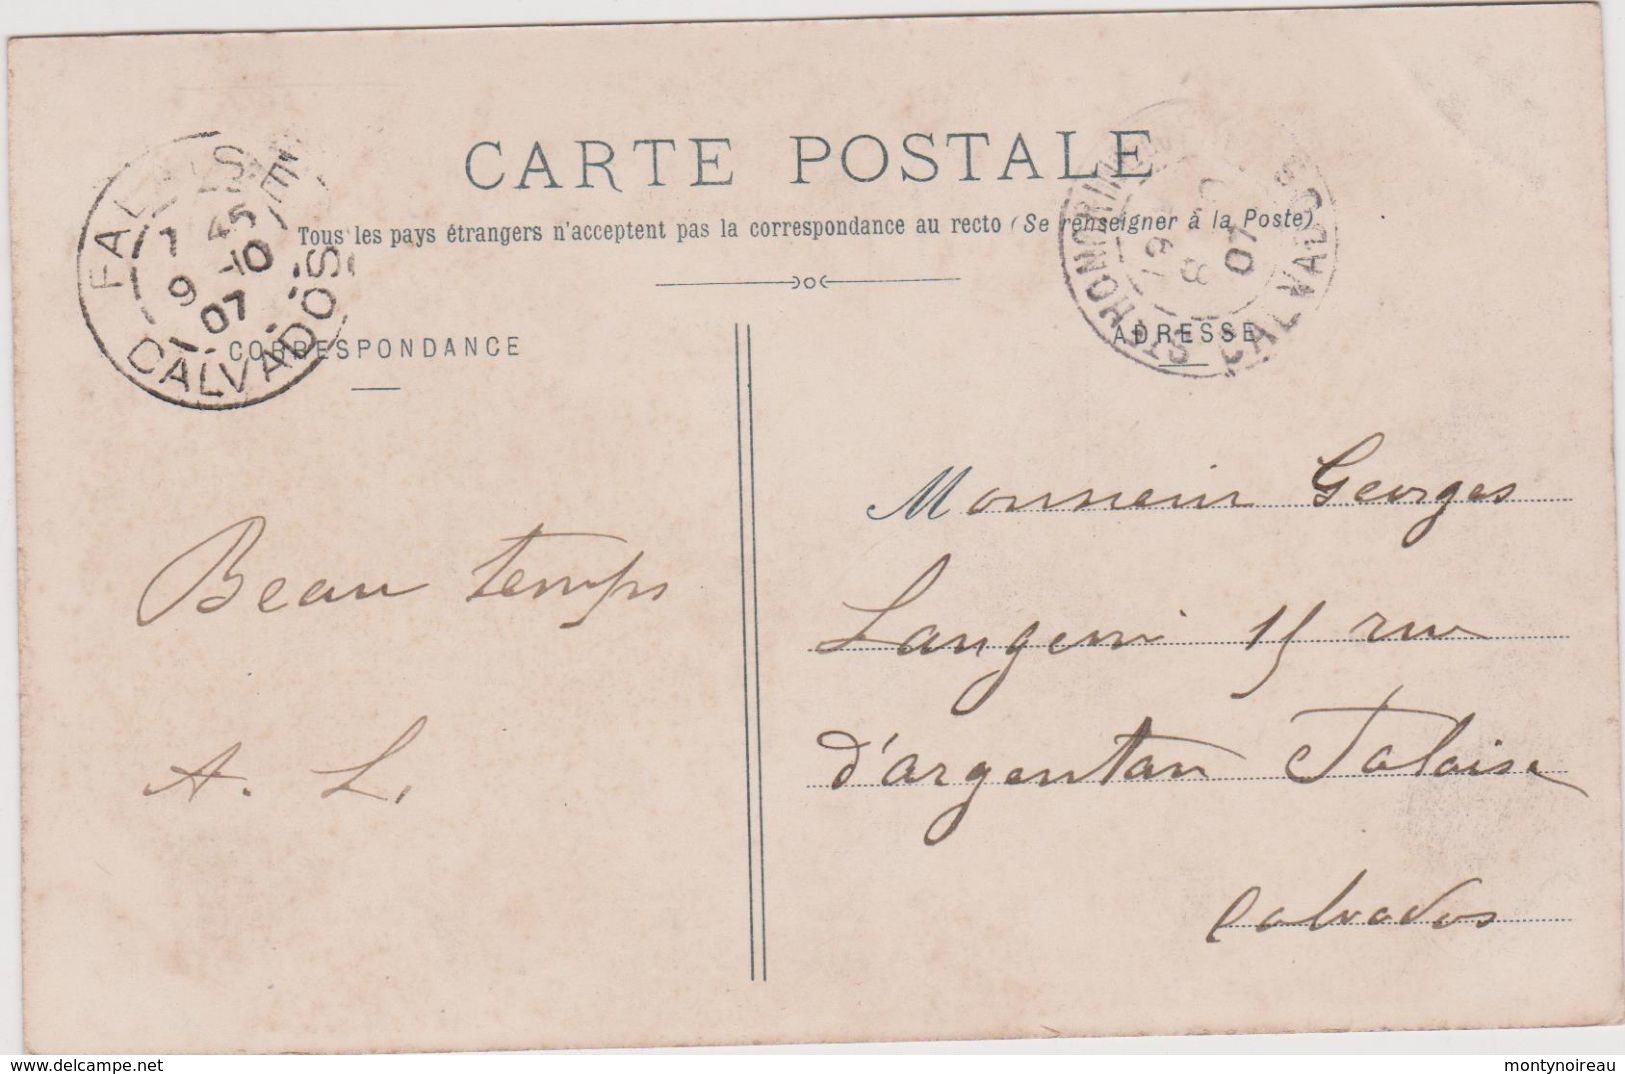 CARTE POSTALE
Tous les pays étrangers n'acceptent pas la correspondance au recto (Se renseigner à la Poste)
FALAISE
7 45
9 -10
07
CALVADOS
CORRESPONDANCE
ADRESSE
07
CALVADOS
Beau temps
A. L.
Monsieur Georges
15 rue
d'argentan Falaise
Calvados
delcampe.net
montynoireau